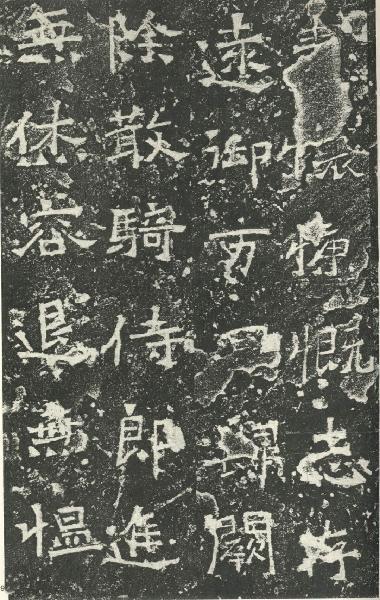 懷慷慨志存
遠御歸闕
除散騎侍郎進
無休容退無慍